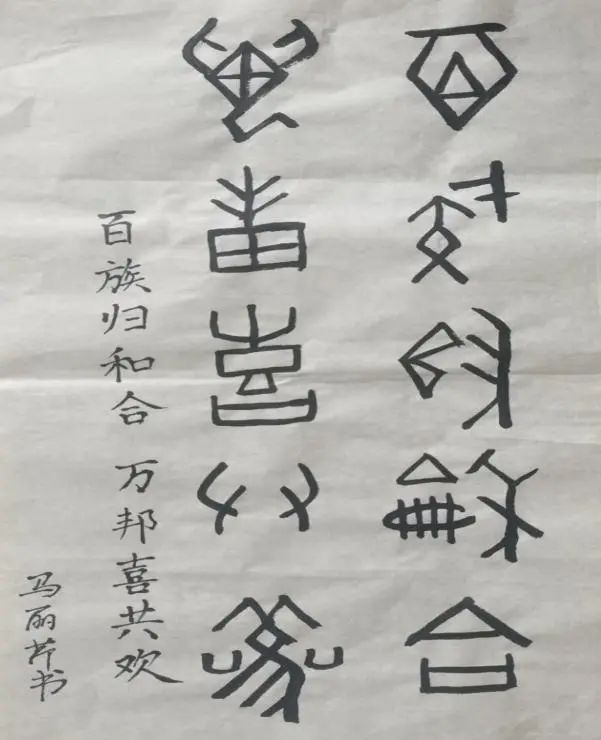 百族归和合
万邦喜共欢
百族归和合 万邦喜共欢
马丽芹书